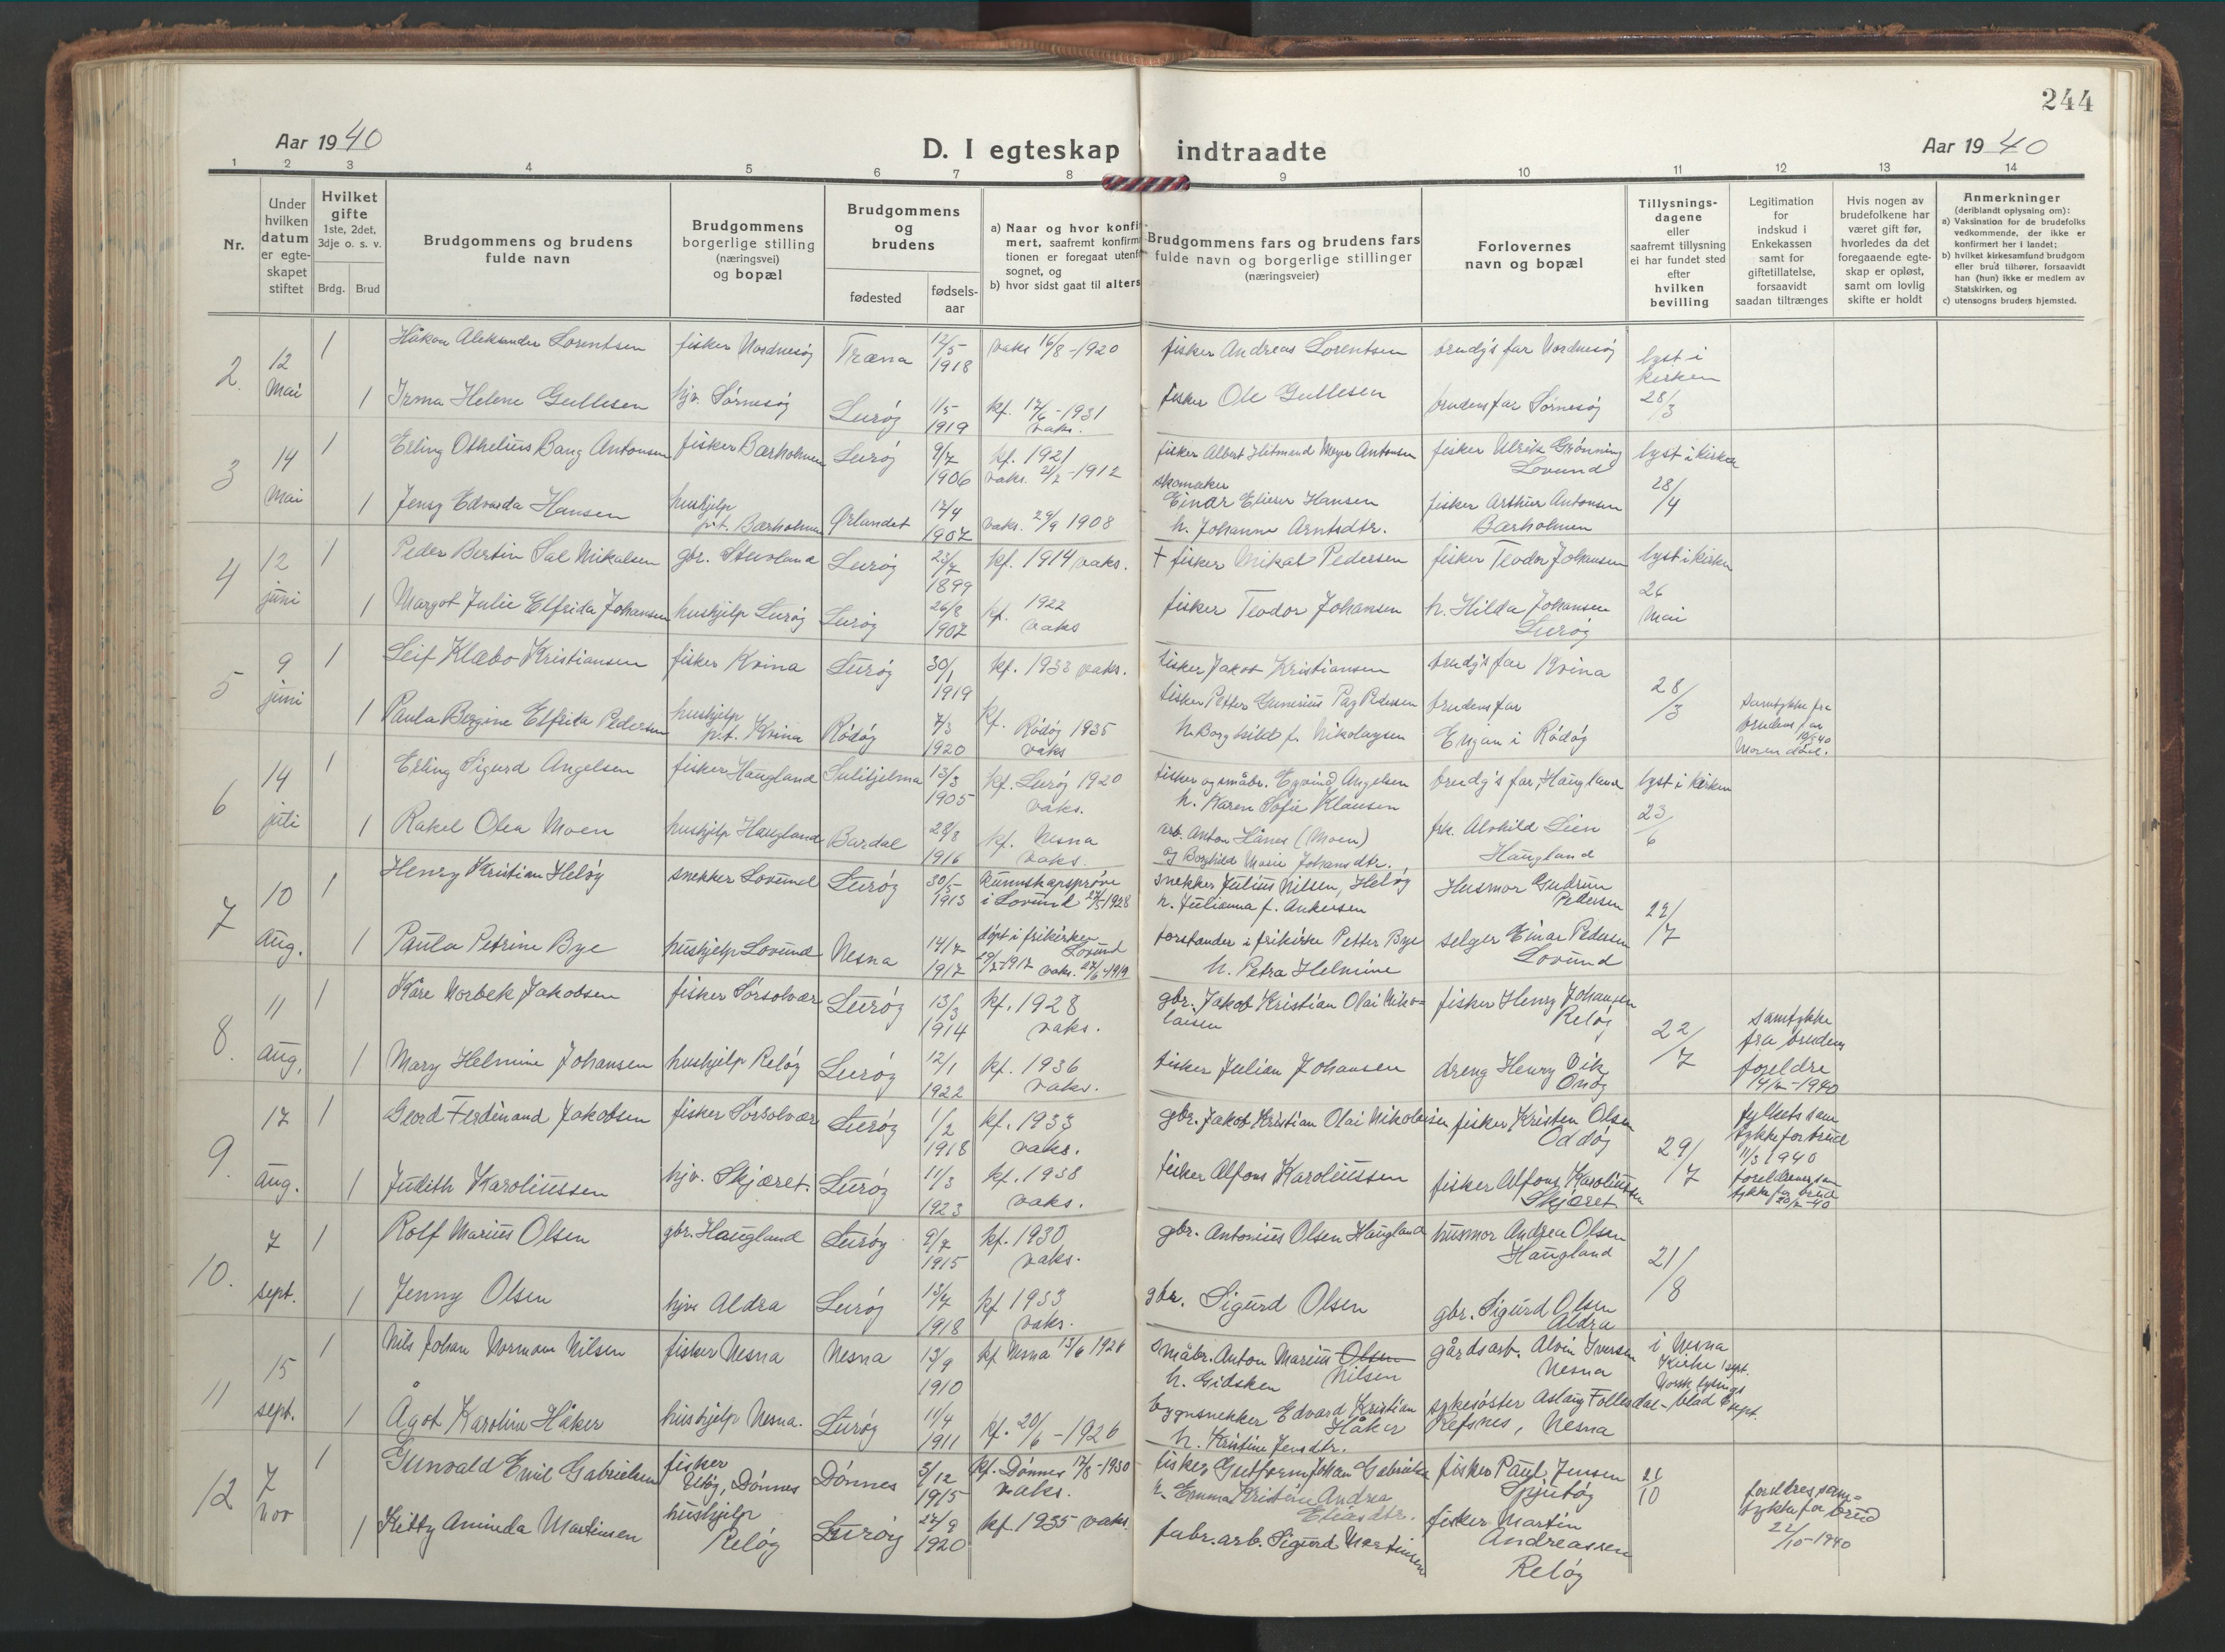 244
Aar 1940
D. I egteskap indtraadte
Aar 1940
1 2 3 4 5 6 7 8 9 10 11 12 13 14
Nr.
Under hvilken datum er egte-skapet stiftet
Hvilket gifte 1ste, 2det, 3dje o. s. v.
Brdg. Brud
Brudgommens og brudens fulde navn
Brudgommens borgerlige stilling (næringsvei) og bopæl
Brudgommens og brudens
fødested
fødsels-aar
a) Naar og hvor konfir
mert, saafremt konfirm
tionen er foregaat utenf
sognet, og
b) hvor sidst gaat til alters
Brudgommens fars og brudens fars
fulde navn og borgerlige stillinger
(næringsveier)
Forlovernes
navn og bopæl
Tillysnings-
dagene
eller
saafremt tillysning
ei har fundet sted
efter
hvilken
bevilling
Legitimation
for
indskud i
Enkekassen
samt for
giftetillatelse,
forsaavidt
saadan tiltrænges
Hvis nogen av
brudefolkene har
været gift før,
hvorledes da det
foregaaende egte-
skap er opløst,
samt om lovlig
skifte er holdt
Anmerkninger
(deriblandt oplysning om):
a) Vaksination for de brudefolks
vedkommende, der ikke er
konfirmert her i landet;
b) hvilket kirkesamfund brudgom
eller brud tilhører, forsaavidt
han (hun) ikke er medlem av
Statskirken, og
c) utensogns bruders hjemsted.
2. 12 Mai 1 Håkon Aleksander Lorentsen fisker Nordnesøy Træna 12/5 1918 vaks 16/8-1920 fisker Andreas Lorentsen brudg's far Nordnesøy lyst i kirken 28/3
1 Irma Helene Gullesen hjv. Sørnesøy Lurøy 1/5 1919 kf. 1931 vaks. fisker Ole Gullesen brudens far Sørnesøy
3 14 Mai 1 Erling Othelius Bang Antonsen fisker Bærholmen Lurøy 9/7 1906 kf. 1921 vaks. 2/2-1912 fisker Albert Meyer Antonsen fisker Ulrik Grønning Lovund lyst i kirken 28/4
1 Jensy Edvarda Hansen hushjelp p.t. Bærholmen Ørlandet 17/4 1907 vaks. 29/9 1908 skomaker Einar Elieser Hansen h. Johanne Arntsdtr. fisker Arthur Antonsen Bærholmen
4 12 juni 1 Peder Bertin Sal Mikalsen gbr. Stuvland Lurøy 23/7 1899 kf. 1914 vaks. + fisker Mikal Pedersen fisker Teodor Johansen lyst i kirken 26 Mai
1 Margot Julie Elfrida Johansen hushjelp Lurøy Lurøy 26/8 1907 kf. 1922 vaks fisker Teodor Johansen h. Hilda Johansen Lurøy
5 9 juni 1 Leif Klæbo Kristiansen fisker Kvina Lurøy 30/1 1919 kf. 1933 vaks. fisker Jakob Kristiansen brudg's far Kvina 28/3
1 Paula Bergine Elfrida Pedersen hushjelp p.t. Kvina Rödöy 7/3 1920 kf. Rödöy 1935 vaks fisker Petter Pedersen h. Borghild f. Nikolaysen brudens far i Rödöy Samtykke fra brudens far Moren död.
6 14 juli 1 Erling Sigurd Angelsen fisker Haugland Sulitjelma 13/3 1905 kf. Lurøy 1920 vaks. fisker og småbr. Eyvind Angelsen h. Karen Sofie Klausen brudg's far, Haugland lyst i kirken 23/6
1 Rakel Olea Moen hushjelp Haugland Bardal 28/8 1916 kf. Nesna vaks. arb. Anton Hånes (Moen) og Borghild Marie Johansdtr. frk. Alvhild Lien Haugland
7 10 aug. 1 Henry Kristian Heløy snekker Lovund Lurøy 30/5 1913 kunnskapsprøve i Lovund 1928 snekker Julius Nilsen, Heløy h. Julianna f. Ankersen Husmor Gudrun Pedersen 22/7
1 Paula Petrine Bye hushjelp Lovund Nesna 14/7 1917 döpt i frikirken Lovund 1917 vaks. 1919 forstander i frikirke Petter Bye h. Petra Helmine selger Einar Pedersen Lovund
8. 11 aug. 1 Kåre Norbek Jakobsen fisker Sörsolvær Lurøy 13/3 1914 kf. 1928 vaks. gbr. Jakob Kristian Olai Niko-laisen fisker Henry Johansen Reløy 22/7 samtykke fra brudens foreldre 14/7-1940
1 Mary Helmine Johansen hushjelp Reløy Lurøy 12/1 1922 kf. 1936 vaks. fisker Julian Johansen dreng Henry Vik Onöy
9. 17 aug. 1 Geord Ferdinand Jakobsen fisker Sörsolvær Lurøy 1/2 1918 kf. 1933 vaks. gbr. Jakob Kristian Olai Nikolaisen fisker Kristen Olsen Oddöy 29/7 fylkets samtykke for brud 11/3 1940
1 Judith Karoliussen hjv. Skjæret. Lurøy 11/3 1923 kf. 1938 vaks. fisker Alfons Karoliussen fisker Alfons Karoliussen Skjæret foreldrenes samtykke for brud
10. 7 sept. 1 Rolf Marius Olsen gbr. Haugland Lurøy 9/7 1915 kf. 1930 vaks. gbr. Antonius Olsen Haugland husmor Andrea Olsen Haugland 21/8
1 Jenny Olsen hjv. Aldra Lurøy 13/7 1918 kf 1933 vaks. gbr. Sigurd Olsen gbr. Sigurd Olsen Aldra
11 15 sept. 1 Nils Johan Normann Nilsen fisker Nesna Nesna 13/9 1910 kf Nesna 13/6 småbr. Anton Marius Olsen Nilsen h. Gidsken gårdsarb. Alvin Iversen Nesna i Nesna kirke 1 sept. Norsk lysings
1 Ågot Karoline Håker hushjelp Nesna. Lurøy 11/4 1911 kf. 20/6-1926 bygnsnekker Edvard Kristian Håker h. Kristine Jensdtr. sykesöster Aslaug Follesdal Refsnes, Nesna -blad 6 sept.
12 7 nov 1 Gunvald Emil Gabrielsen fisker Dönnes Dönnes 3/12 1915 kf. Dönnes 17/8-1930 vaks. fisker Guttorm Johan Gabrielsen h. Emma Kristine Andrea Eliasdtr. fisker Paul Jensen Spjutöy 21/10 foreldres sam=tykke for brud 22/10-1940
1 Kitty Aminda Martinsen hushjelp Reløy Lurøy 27/9 1920 kf. 1935 vaks. fabr.arb. Sigurd Martinsen fisker Martin Andreassen Reløy